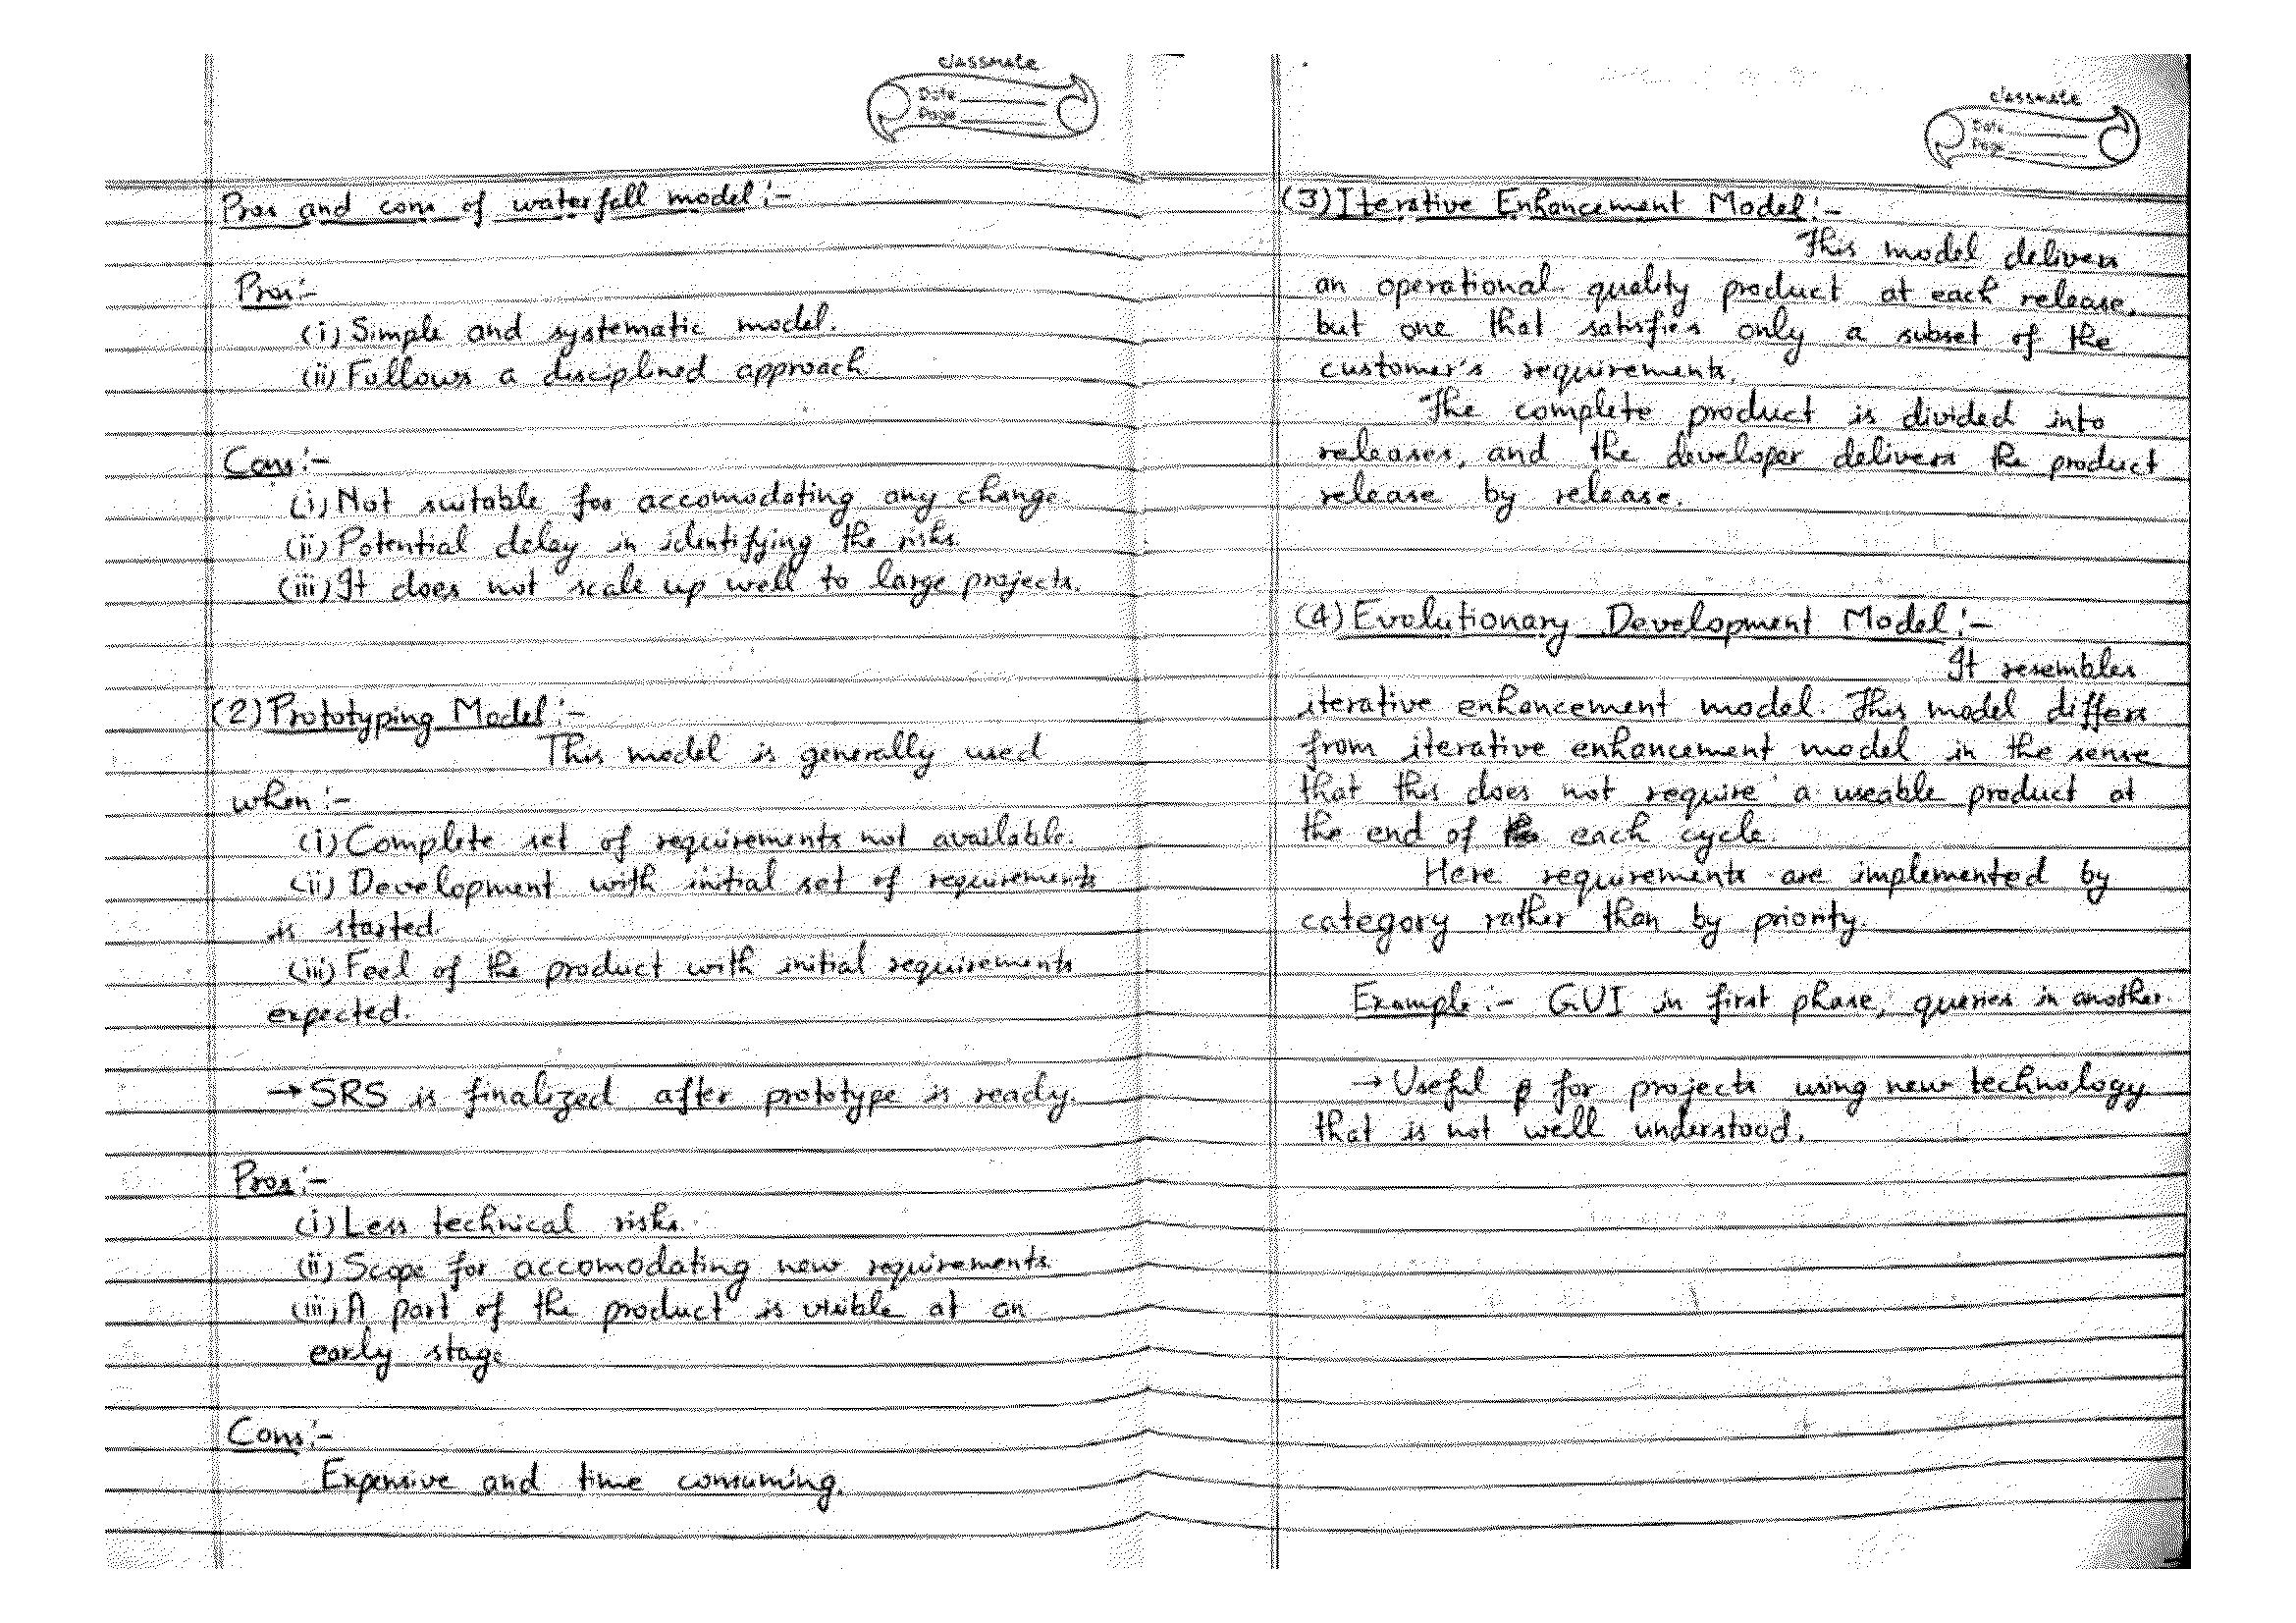 classmate
Date
Page
Pros and cons of waterfall model:-
Pros:-
(i) Simple and systematic model.
(ii) Follows a disciplined approach
Cons:-
(i) Not suitable for accomodating any change
(ii) Potential delay in identifying the risks.
(iii) It does not scale up well to large projects.
(2) Prototyping Model:-
This model is generally used
when:-
(i) Complete set of requirements not available.
(ii) Development with initial set of requirements
is started.
(iii) Feel of the product with initial requirements
expected.
→ SRS is finalized after prototype is ready.
Pros:-
(i) Less technical risks.
(ii) Scope for accomodating new requirements.
(iii) A part of the product is visible at an
early stage
Cons:-
Expensive and time consuming.
classmate
Date
Page
(3) Iterative Enhancement Model:-
This model delivers
an operational quality product at each release,
but one that satisfies only a subset of the
customer's requirements.
The complete product is divided into
releases, and the developer delivers the product
release by release.
(4) Evolutionary Development Model:-
It resembles
iterative enhancement model. This model differs
from iterative enhancement model in the sense
that this does not require a useable product at
the end of each cycle.
Here requirements are implemented by
category rather than by priority.
Example:- GUI in first phase, queries in another.
→ Useful for projects using new technology
that is not well understood.